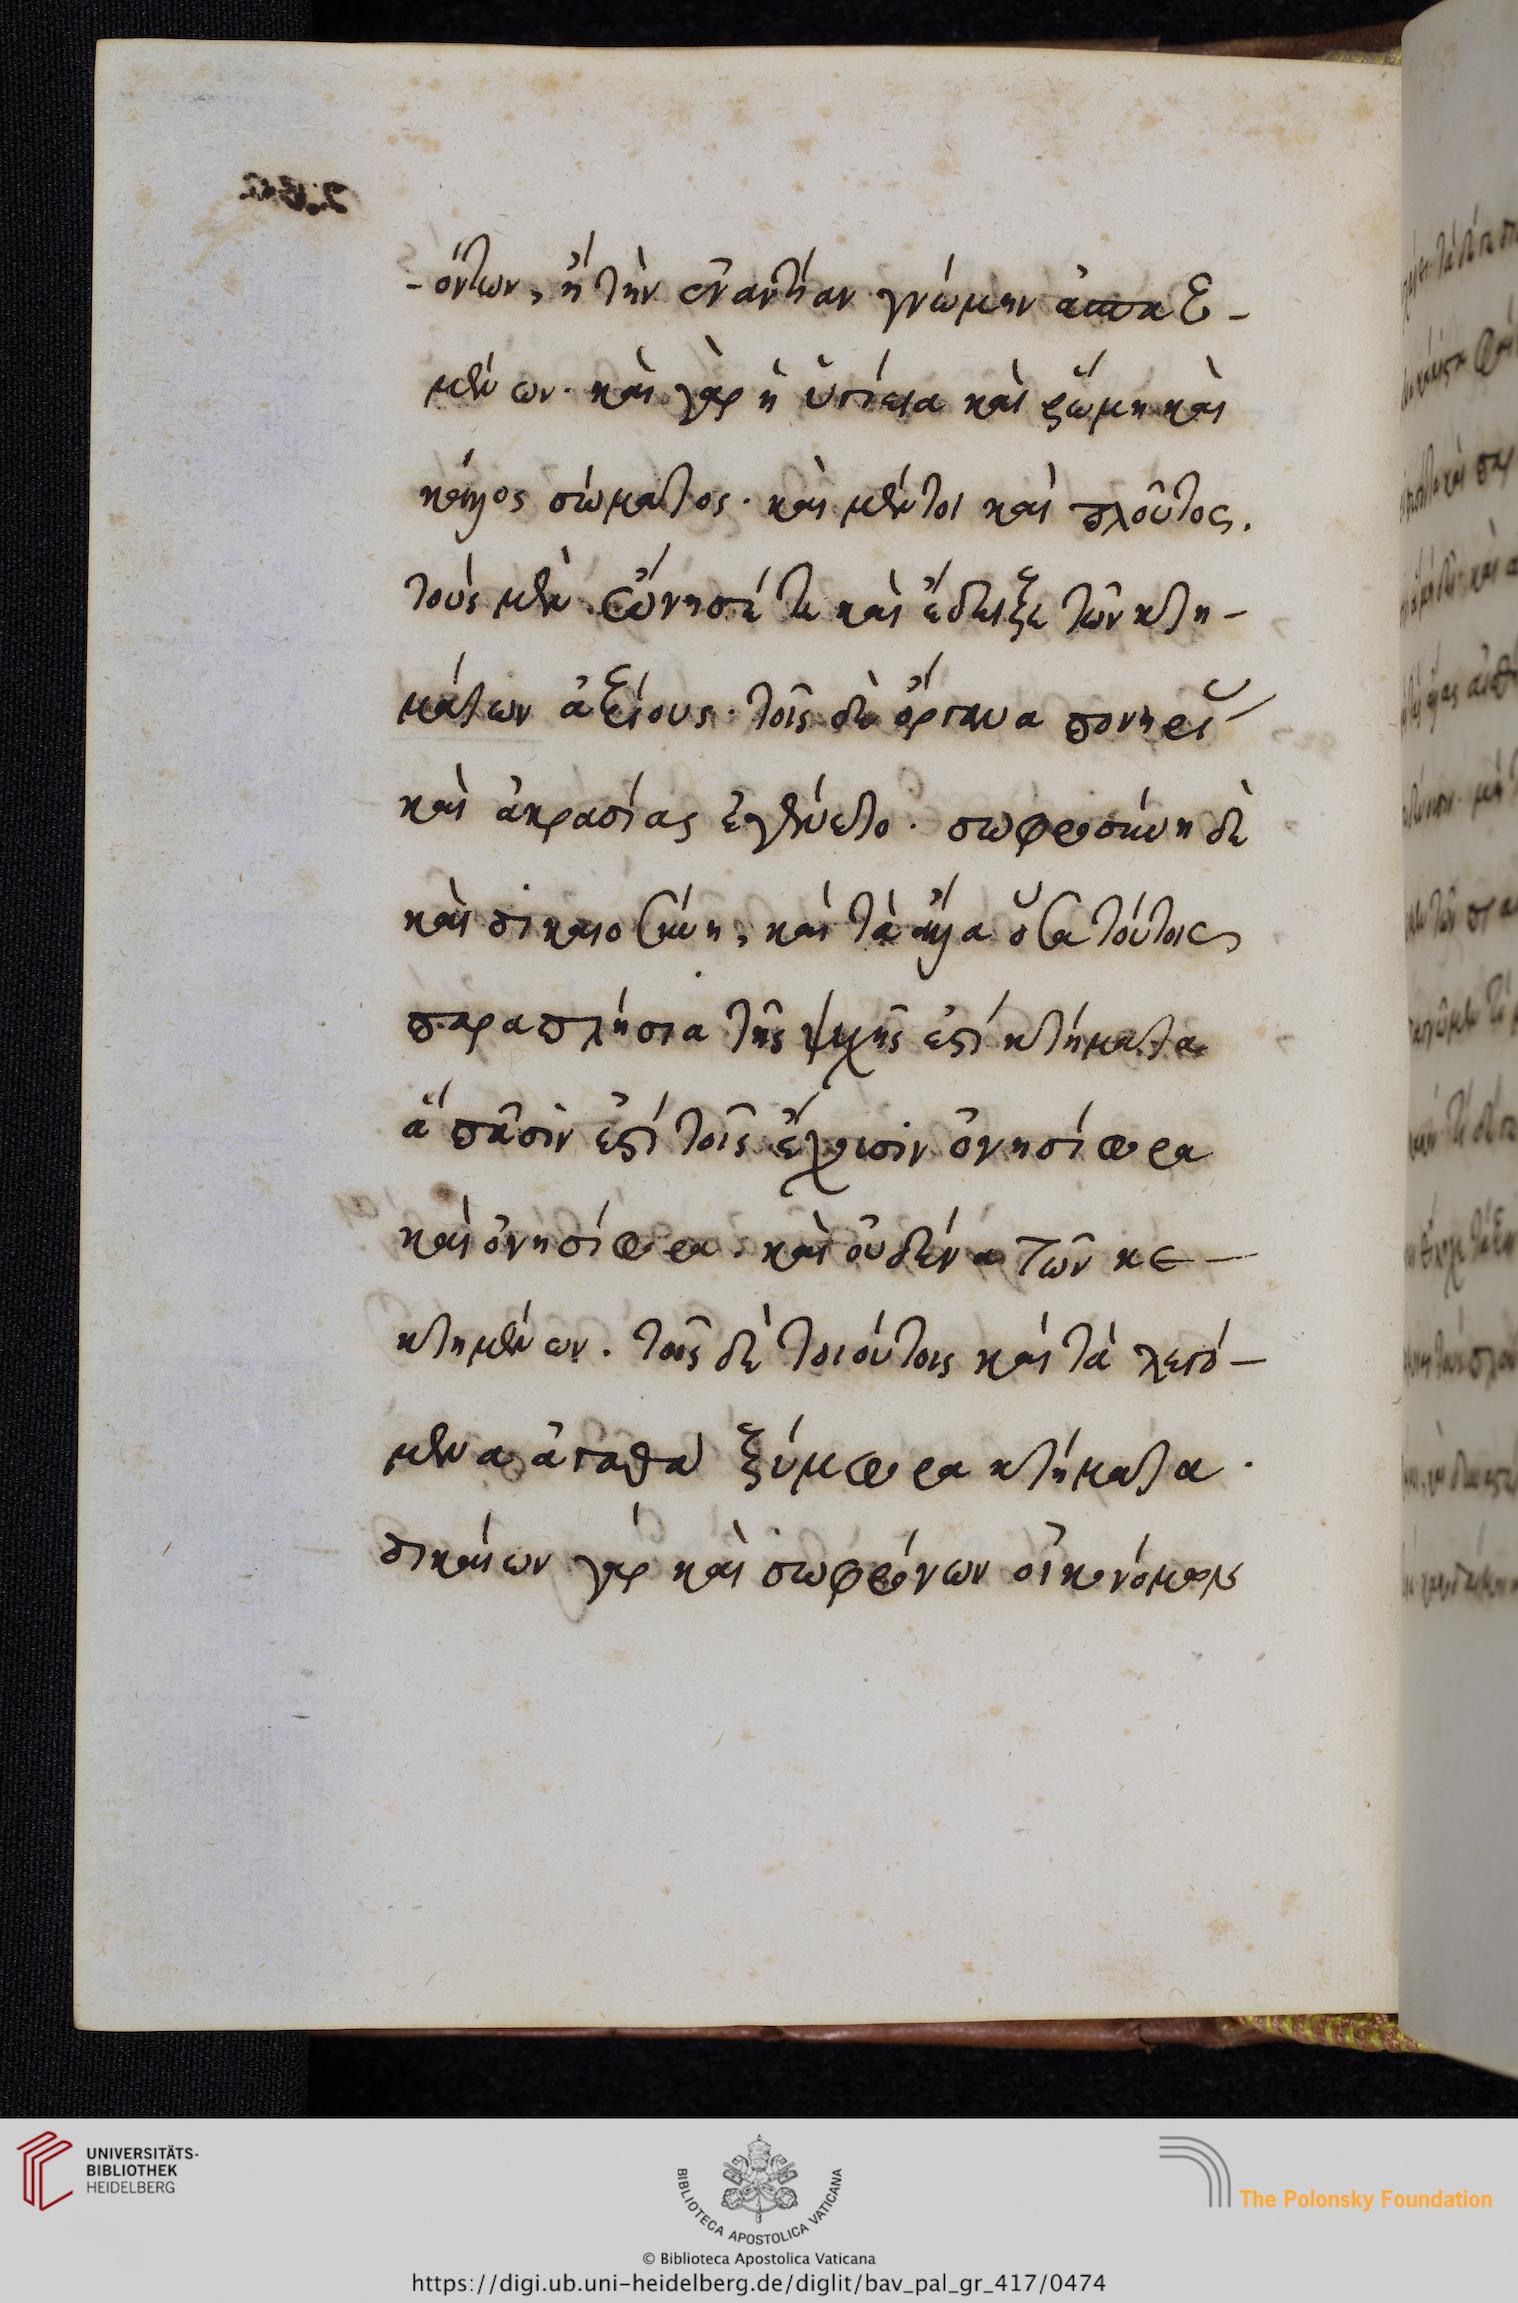 -όντων, ἢ τὴν ἐναντίαν γνώμην ε-
μένων· καὶ γὰρ ἡ ὑγίεια καὶ ῥώμη καὶ
κάλλος σώματος· καὶ μέντοι καὶ πλοῦτος.
τοὺς μὲν ὤνησέ τε καὶ ἔδειξε τῶν κτη-
μάτων ἀξίους· τοῖς δὲ ὄργανα πονηρί
καὶ ἀκρασίας ἐγένετο· σωφροσύνη δὲ
καὶ δικαιοσύνη, καὶ τὰ ἄλλα ὅσα τούτοις
παραπλήσια τῆς ψυχῆς ἐστὶ κτήματα
ἃ πᾶσίν ἐστὶ τοῖς ἔχουσιν ὀνησίφορα
καὶ ὀνησίφορα· καὶ οὐδένα τῶν κε-
κτημένων. τοῖς δὲ τοιούτοις καὶ τὰ λεγό-
μενα ἀγαθὰ ξύμφορα κτήματα·
δικαίων γὰρ καὶ σωφρόνων
UNIVERSITÄTS-
BIBLIOTHEK
HEIDELBERG
BIBLIOTECA APOSTOLICA VATICANA
The Polonsky Foundation
© Biblioteca Apostolica Vaticana
https://digi.ub.uni-heidelberg.de/diglit/bav_pal_gr_417/0474